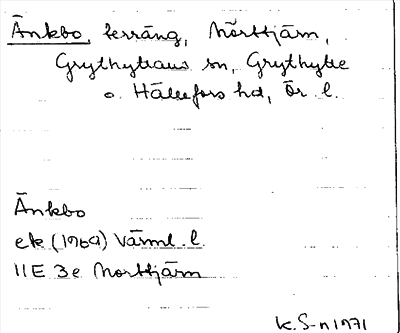 Änkbo, terräng, Norrtjärn,
Grythyttans sn, Grythytte
o. Hällefors hd, Ör. l.
Änkbo
ek (1969) Värml. l.
11E 3e Norrtjärn
K.S-n 1971